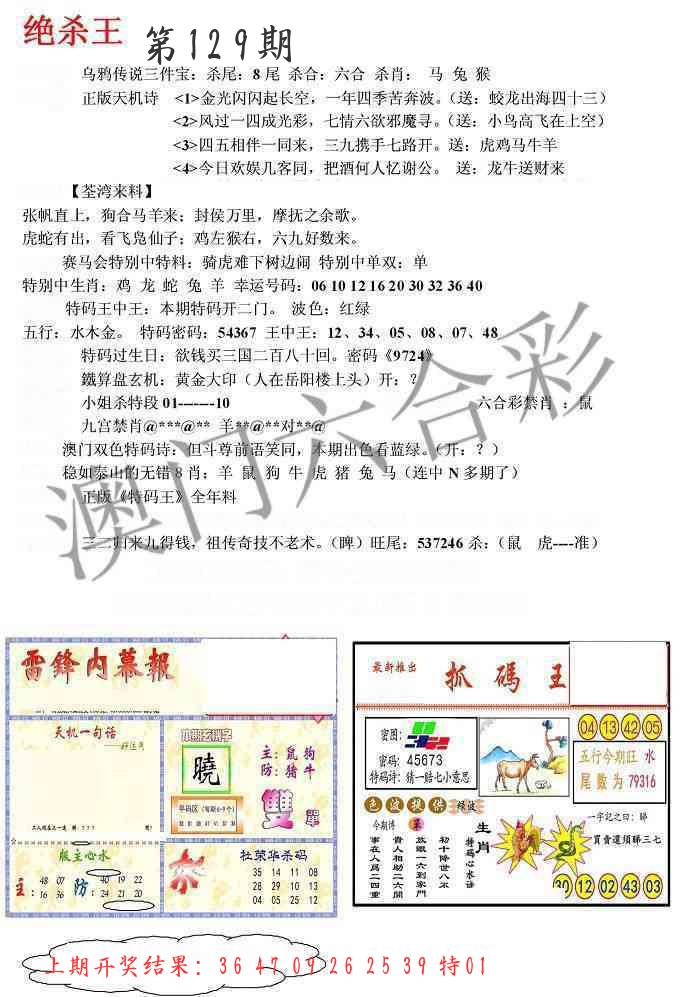 绝杀王
第129期
乌鸦传说三件宝：杀尾：8 尾 杀合：六合 杀肖： 马 兔 猴
正版天机诗 <1>金光闪闪起长空，一年四季苦奔波。（送：蛟龙出海四十三）
<2>风过一四成光彩，七情六欲邪魔寻。（送：小鸟高飞在上空）
<3>四五相伴一同来，三九携手七路开。送：虎鸡马牛羊
<4>今日欢娱几客同，把酒何人忆谢公。 送：龙牛送财来
【荃湾来料】
张帆直上，狗合马羊来；封侯万里，摩抚之余歌。
虎蛇有出，看飞凫仙子；鸡左猴右，六九好数来。
赛马会特别中特料：骑虎难下树边闹 特别中单双：单
特别中生肖：鸡 龙 蛇 兔 羊 幸运号码：06 10 12 16 20 30 32 36 40
特码王中王：本期特码开二门。 波色：红绿
五行：水木金。 特码密码：54367 王中王：12、34、05、08、07、48
特码过生日：欲钱买三国二百八十回。密码《9724》
鐵算盘玄机：黄金大印（人在岳阳楼上头）开：？
小姐杀特段 01--------10 六合彩禁肖 ：鼠
九宫禁肖@***@** 羊**@**对**@
澳门双色特码诗：但斗尊前语笑同，本期出色看蓝绿。（开：？）
稳如泰山的无错 8 肖：羊 鼠 狗 牛 虎 猪 兔 马（连中 N 多期了）
正版《特码王》全年料
三二归来九得钱，祖传奇技不老术。（睥）旺尾：537246 杀：（鼠 虎----准）
澳门六合彩
雷鋒内幕報
天机一句话
曉
主：鼠狗
防：猪牛
平码区（每期6-9个）
雙
單
版主心水
主：
48 07
16 36
防：
40 19 22
24 21 20
杜荣华杀码
杀
35 14 11 08
29 10 09 13
04 05 25 12
最新推出
抓碼王
密图：
密码：45673
特码诗：猜一赔七小意思
04 13 42 05
五行今期旺 水
尾数为 79316
色波提供
绿波
今期博
第
事在人爲二四重
貴人相助二六開
放眼一六到家門
初十降世八不
特码心水语
生肖
一字記之曰：睇
買貴還須睇三七
30 12 02 43 03
上期开奖结果：36 47 09 26 25 39 特01